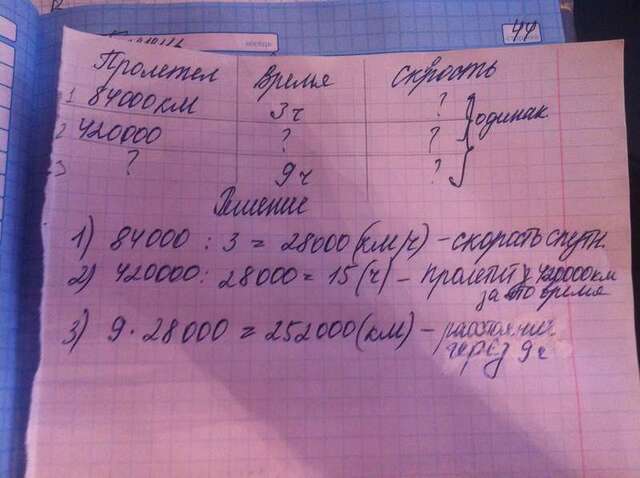 44
Пролетел Время Скорость
1 84000 км 3 ч ?
2 420000 ? ? одинак.
3 ? 9 ч ?
Решение
1) 84000 : 3 = 28000 (км/ч) - скорость спутн.
2) 420000 : 28000 = 15 (ч) - пролетит 420000 км
за это время
3) 9 · 28000 = 252000 (км) - расстояние
через 9 ч